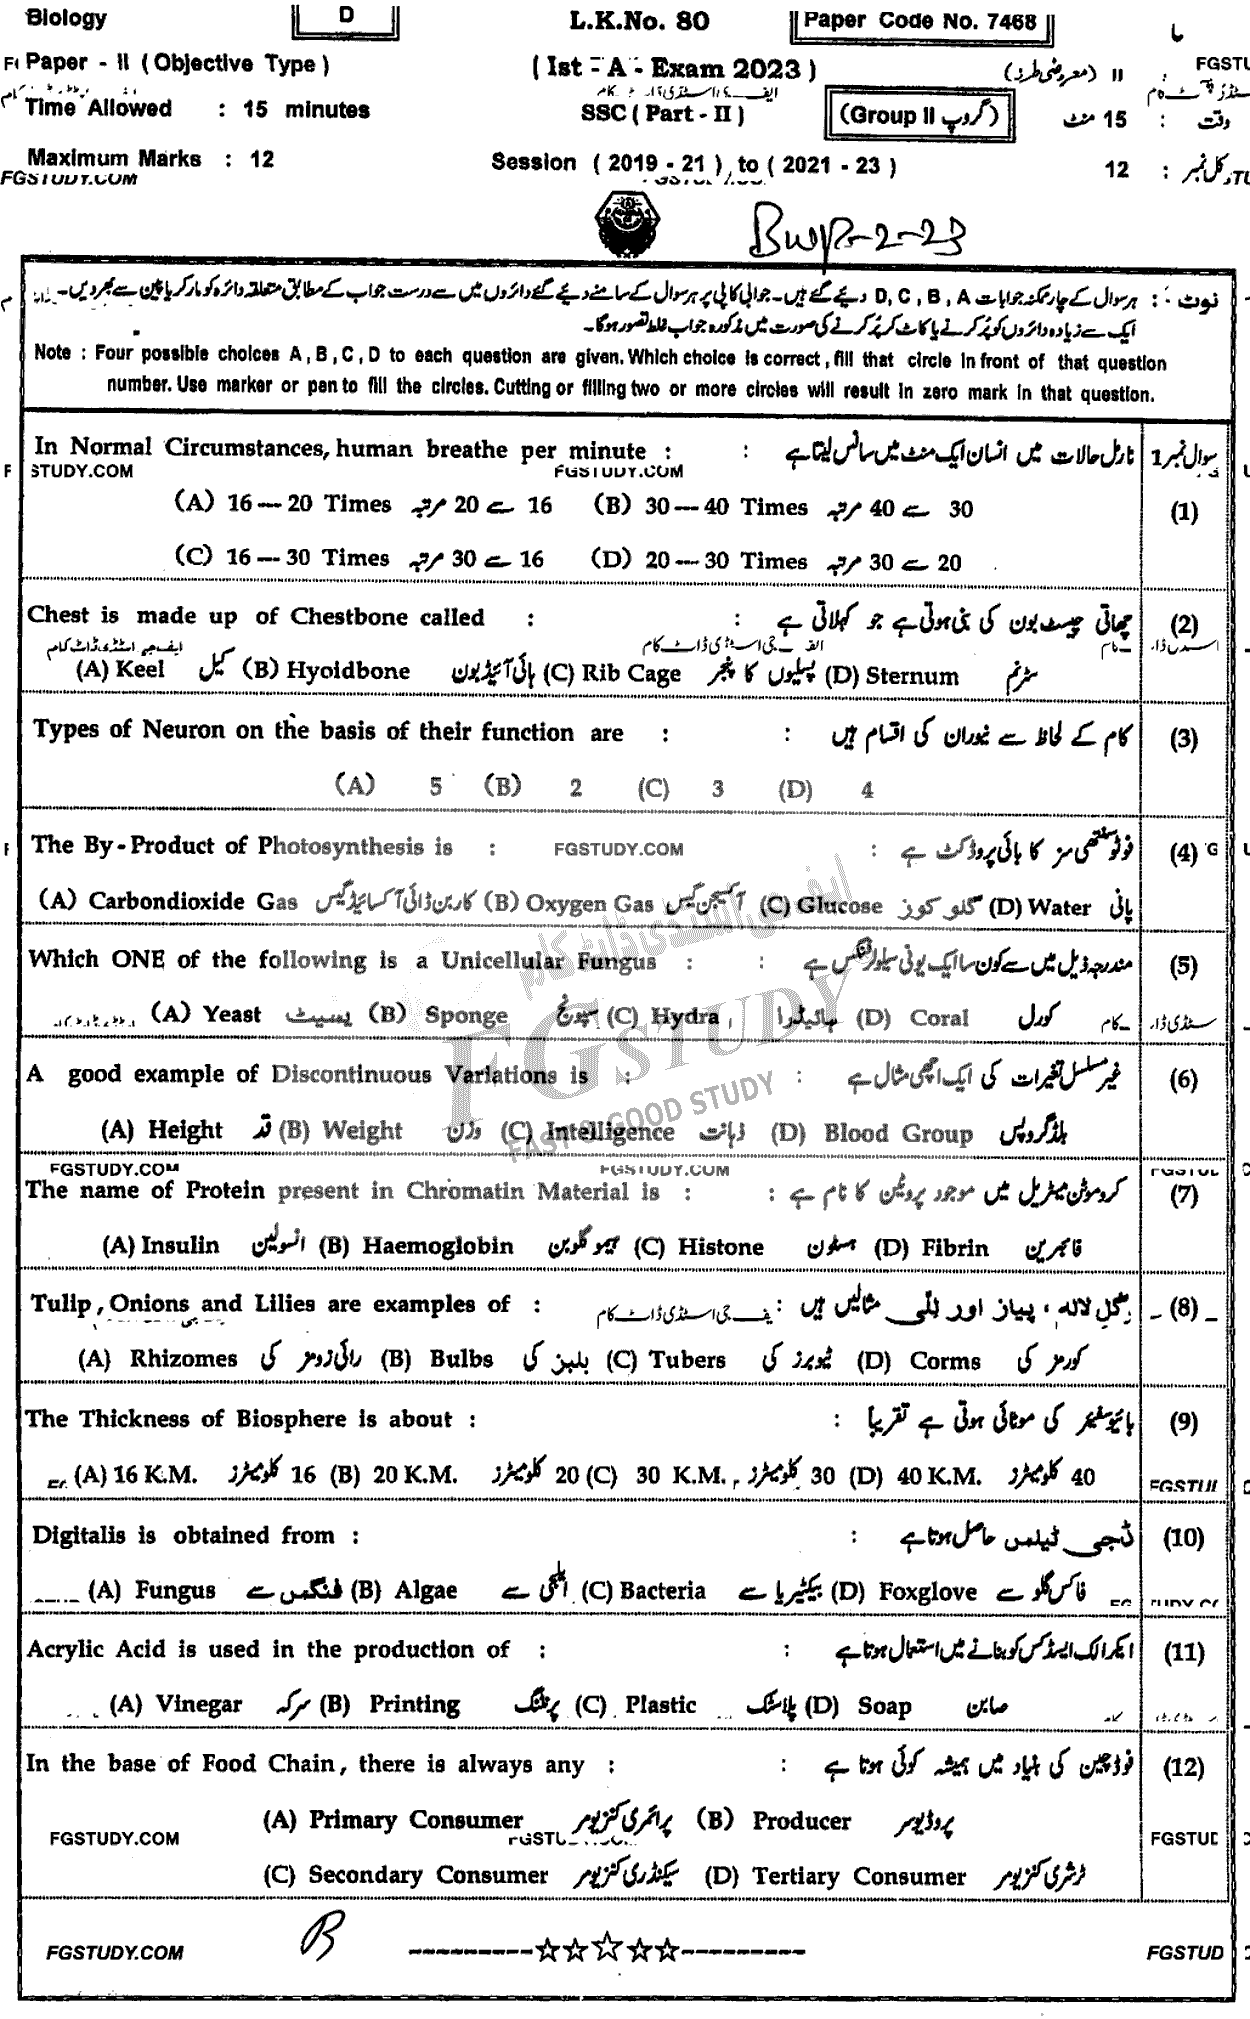 Biology D L.K.No. 80 Paper Code No. 7468
Paper - II ( Objective Type ) ( Ist - A - Exam 2023 ) II ( معروضی طرز ) FGSTU
Time Allowed : 15 minutes SSC ( Part - II ) (Group II گروپ) وقت : 15 منٹ
Maximum Marks : 12 Session ( 2019 - 21 ) to ( 2021 - 23 ) کل نمبر : 12
FGSTUDY.COM
BWP-2-23
نوٹ : ہر سوال کے چار ممکنہ جوابات D , C , B , A دیئے گئے ہیں۔ جوابی کاپی پر ہر سوال کے سامنے دیئے گئے دائروں میں سے درست جواب کے مطابق متعلقہ دائرہ کو مارکر یا پین سے بھر دیں۔
ایک سے زیادہ دائروں کو پُر کرنے یا کاٹ کر پُر کرنے کی صورت میں مذکورہ جواب غلط تصور ہوگا۔
Note : Four possible choices A , B , C , D to each question are given. Which choice is correct , fill that circle in front of that question
number. Use marker or pen to fill the circles. Cutting or filling two or more circles will result in zero mark in that question.
In Normal Circumstances, human breathe per minute : : نارمل حالات میں انسان ایک منٹ میں سانس لیتا ہے سوال نمبر 1
STUDY.COM FGSTUDY.COM
(A) 16 -- 20 Times 16 سے 20 مرتبہ (B) 30 -- 40 Times 30 سے 40 مرتبہ (1)
(C) 16 -- 30 Times 16 سے 30 مرتبہ (D) 20 -- 30 Times 20 سے 30 مرتبہ
Chest is made up of Chestbone called : : چھاتی چیسٹ بون کی بنی ہوتی ہے جو کہلاتی ہے (2)
ایف جی اسٹڈی ڈاٹ کام
(A) Keel کیل (B) Hyoidbone ہائی آئیڈ بون (C) Rib Cage پسلیوں کا پنجر (D) Sternum سٹرنم
Types of Neuron on the basis of their function are : : کام کے لحاظ سے نیوران کی اقسام ہیں (3)
(A) 5 (B) 2 (C) 3 (D) 4
The By - Product of Photosynthesis is : FGSTUDY.COM : فوٹو سنتھی سز کا بائی پروڈکٹ ہے (4)
(A) Carbondioxide Gas کاربن ڈائی آکسائیڈ گیس (B) Oxygen Gas آکسیجن گیس (C) Glucose گلوکوز (D) Water پانی
ایف جی اسٹڈی ڈاٹ کام
Which ONE of the following is a Unicellular Fungus : : مندرجہ ذیل میں سے کون سا ایک یونی سیلولر فنگس ہے (5)
(A) Yeast ییسٹ (B) Sponge سپونج (C) Hydra ہائیڈرا (D) Coral کورل
FGSTUDY
FAST & GOOD STUDY
A good example of Discontinuous Variations is : : غیر مسلسل تغیرات کی ایک اچھی مثال ہے (6)
(A) Height قد (B) Weight وزن (C) Intelligence ذہانت (D) Blood Group بلڈ گروپس
FGSTUDY.COM FGSTUDY.COM
The name of Protein present in Chromatin Material is : : کروموٹن میٹریل میں موجود پروٹین کا نام ہے (7)
(A) Insulin انسولین (B) Haemoglobin ہیموگلوبن (C) Histone ہسٹون (D) Fibrin فائبرین
Tulip, Onions and Lilies are examples of : ایف جی اسٹڈی ڈاٹ کام : گل لالہ ، پیاز اور للی مثالیں ہیں (8)
(A) Rhizomes رائی زومز کی (B) Bulbs بلبز کی (C) Tubers ٹیوبرز کی (D) Corms کورمز کی
The Thickness of Biosphere is about : : بائیوسفیئر کی موٹائی ہوتی ہے تقریباً (9)
(A) 16 K.M. 16 کلومیٹرز (B) 20 K.M. 20 کلومیٹرز (C) 30 K.M. 30 کلومیٹرز (D) 40 K.M. 40 کلومیٹرز
Digitalis is obtained from : : ڈجی ٹیلس حاصل ہوتا ہے (10)
(A) Fungus فنگس سے (B) Algae الجی سے (C) Bacteria بیکٹیریا سے (D) Foxglove فاکس گلو سے
Acrylic Acid is used in the production of : : ایکرالک ایسڈ کس کو بنانے میں استعمال ہوتا ہے (11)
(A) Vinegar سرکہ (B) Printing پرنٹنگ (C) Plastic پلاسٹک (D) Soap صابن
In the base of Food Chain, there is always any : : فوڈ چین کی بنیاد میں ہمیشہ کوئی ہوتا ہے (12)
(A) Primary Consumer پرائمری کنزیومر (B) Producer پروڈیوسر
FGSTUDY.COM FGSTUD
(C) Secondary Consumer سیکنڈری کنزیومر (D) Tertiary Consumer ٹرشری کنزیومر
FGSTUDY.COM B ---------☆☆☆☆☆--------- FGSTUD